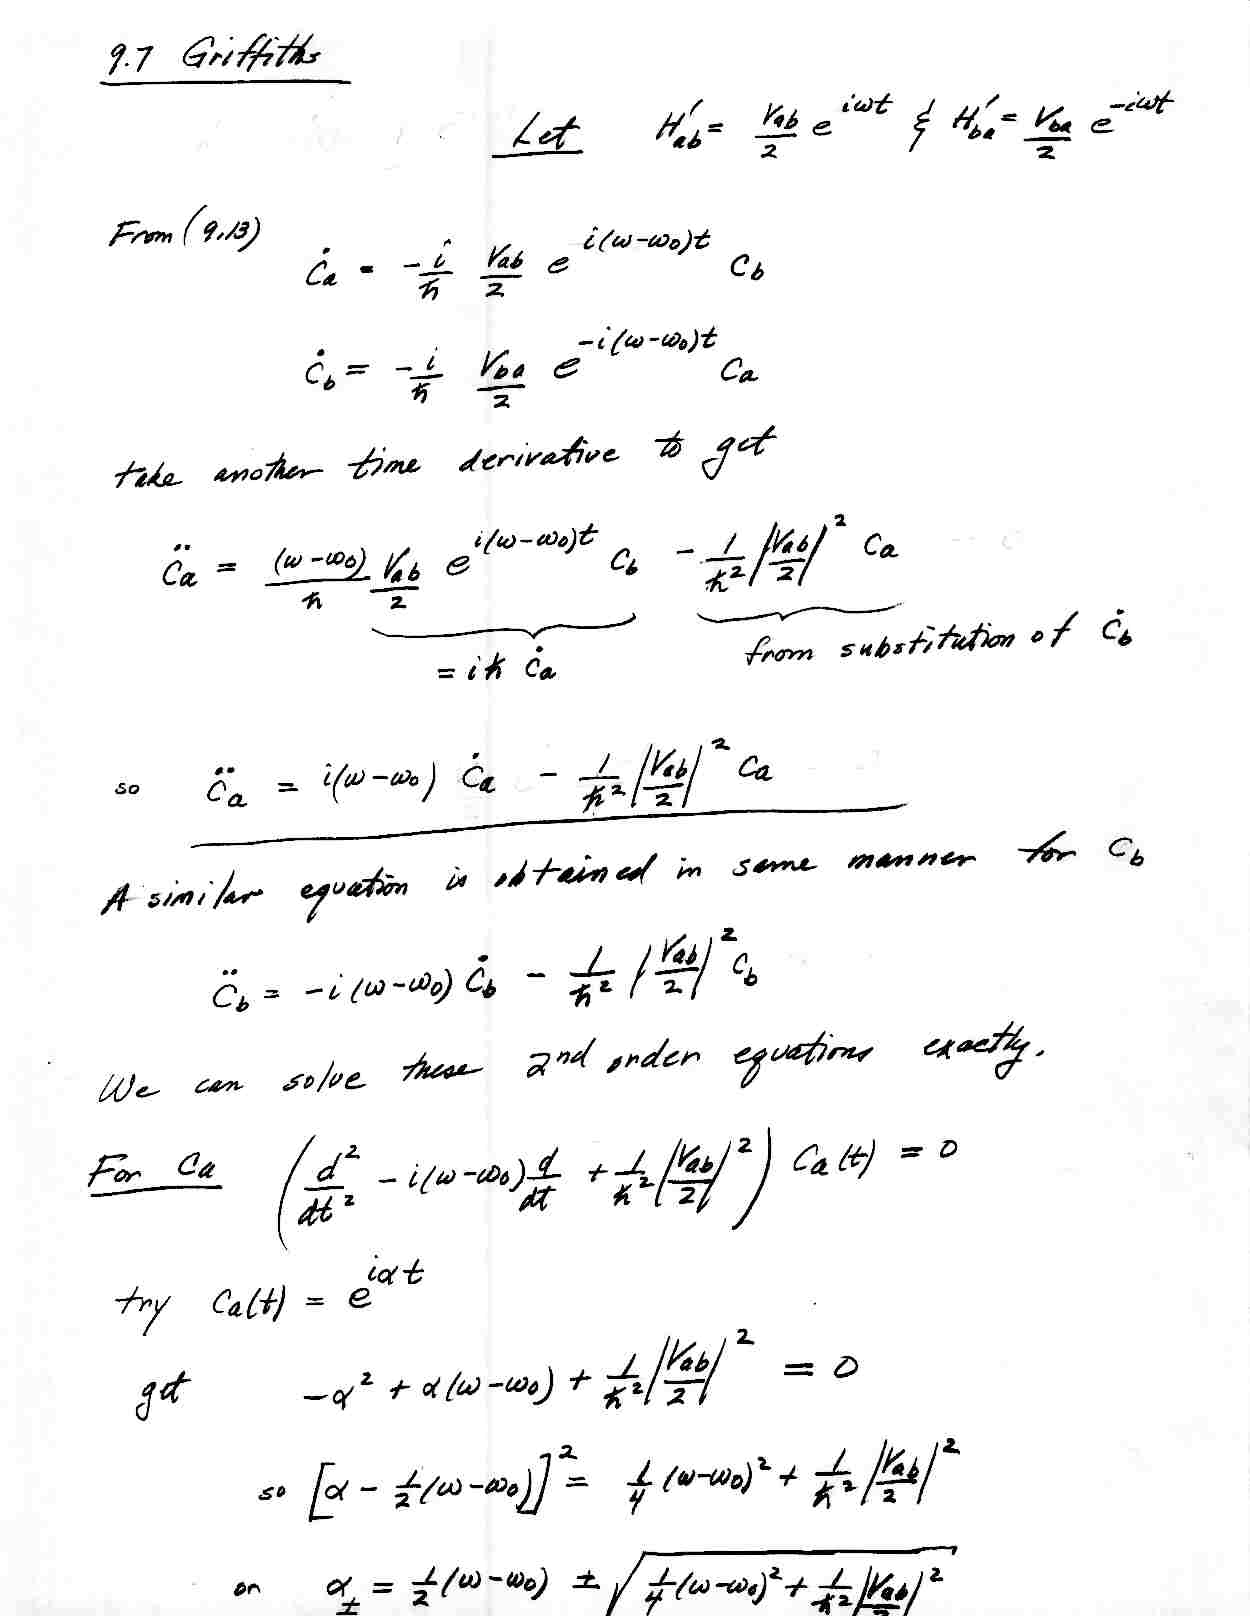 9.7 Griffiths
Let H'ab = Vab/2 e^{iωt} & H'ba = Vba/2 e^{-iωt}
From (9.13)
Ċa = -i/ħ Vab/2 e^{i(ω-ω0)t} Cb
Ċb = -i/ħ Vba/2 e^{-i(ω-ω0)t} Ca
take another time derivative to get
C̈a = (ω-ω0)/ħ Vab/2 e^{i(ω-ω0)t} Cb - 1/ħ² |Vab/2|² Ca
= iħ Ċa from substitution of Ċb
so C̈a = i(ω-ω0) Ċa - 1/ħ² |Vab/2|² Ca
A similar equation is obtained in same manner for Cb
C̈b = -i(ω-ω0) Ċb - 1/ħ² |Vab/2|² Cb
We can solve these 2nd order equations exactly.
For Ca (d²/dt² - i(ω-ω0) d/dt + 1/ħ² |Vab/2|²) Ca(t) = 0
try Ca(t) = e^{iαt}
get -α² + α(ω-ω0) + 1/ħ² |Vab/2|² = 0
so [α - 1/2(ω-ω0)]² = 1/4 (ω-ω0)² + 1/ħ² |Vab/2|²
or α± = 1/2(ω-ω0) ± √(1/4(ω-ω0)² + 1/ħ² |Vab/2|²)